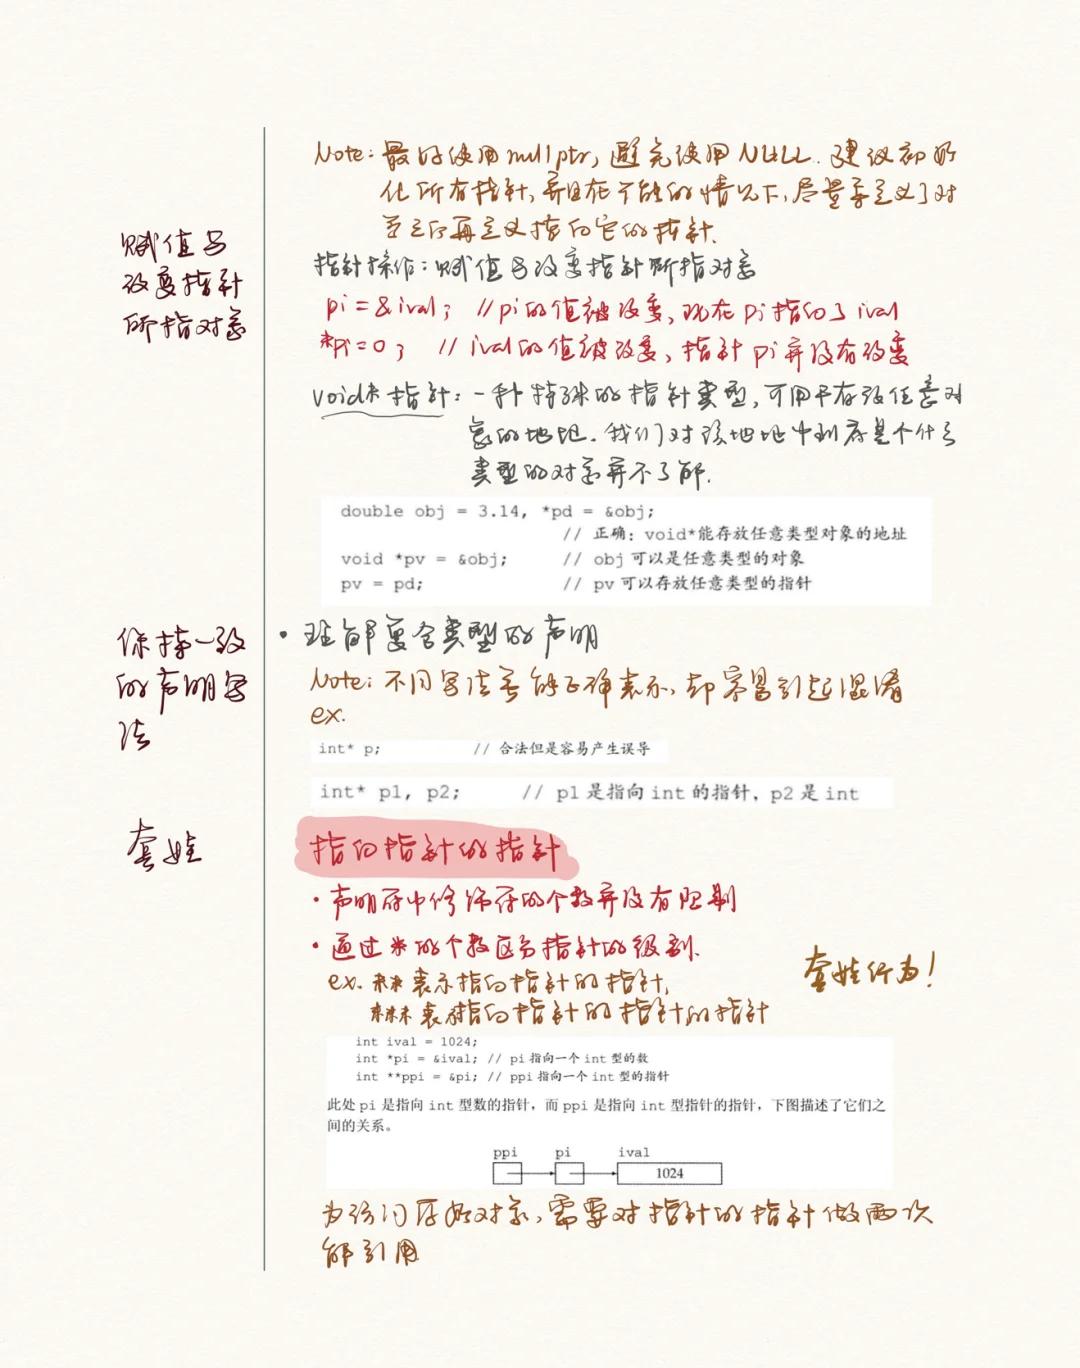 Note: 最好使用nullptr, 避免使用NULL. 建议初始
化所有指针, 并且在可能的情况下, 尽量等定义了对
象之后再定义指向它的指针.
赋值与
改变指针
所指对象
指针操作: 赋值与改变指针所指对象
pi = &ival; //pi的值被改变, 现在pi指向了ival
*pi=0; // ival的值被改变, 指针pi并没有改变
void*指针: 一种特殊的指针类型, 可用于存放任意对
象的地址. 我们对该地址中到底是个什么
类型的对象并不了解.
double obj = 3.14, *pd = &obj;
// 正确: void*能存放任意类型对象的地址
void *pv = &obj; // obj 可以是任意类型的对象
pv = pd; // pv 可以存放任意类型的指针
保持一致
的声明写
法
• 理解复合类型的声明
Note: 不同写法虽能正确表示, 却容易引起混淆
ex.
int* p; // 合法但是容易产生误导
int* p1, p2; // p1 是指向 int 的指针, p2 是 int
套娃
指向指针的指针
• 声明符中修饰符的个数并没有限制
• 通过*的个数区分指针的级别.
套娃行为!
ex. ** 表示指向指针的指针,
*** 表示指向指针的指针的指针
int ival = 1024;
int *pi = &ival; // pi 指向一个 int 型的数
int **ppi = &pi; // ppi 指向一个 int 型的指针
此处 pi 是指向 int 型数的指针，而 ppi 是指向 int 型指针的指针，下图描述了它们之
间的关系。
ppi pi ival
1024
为访问原始对象, 需要对指针的指针做两次
解引用